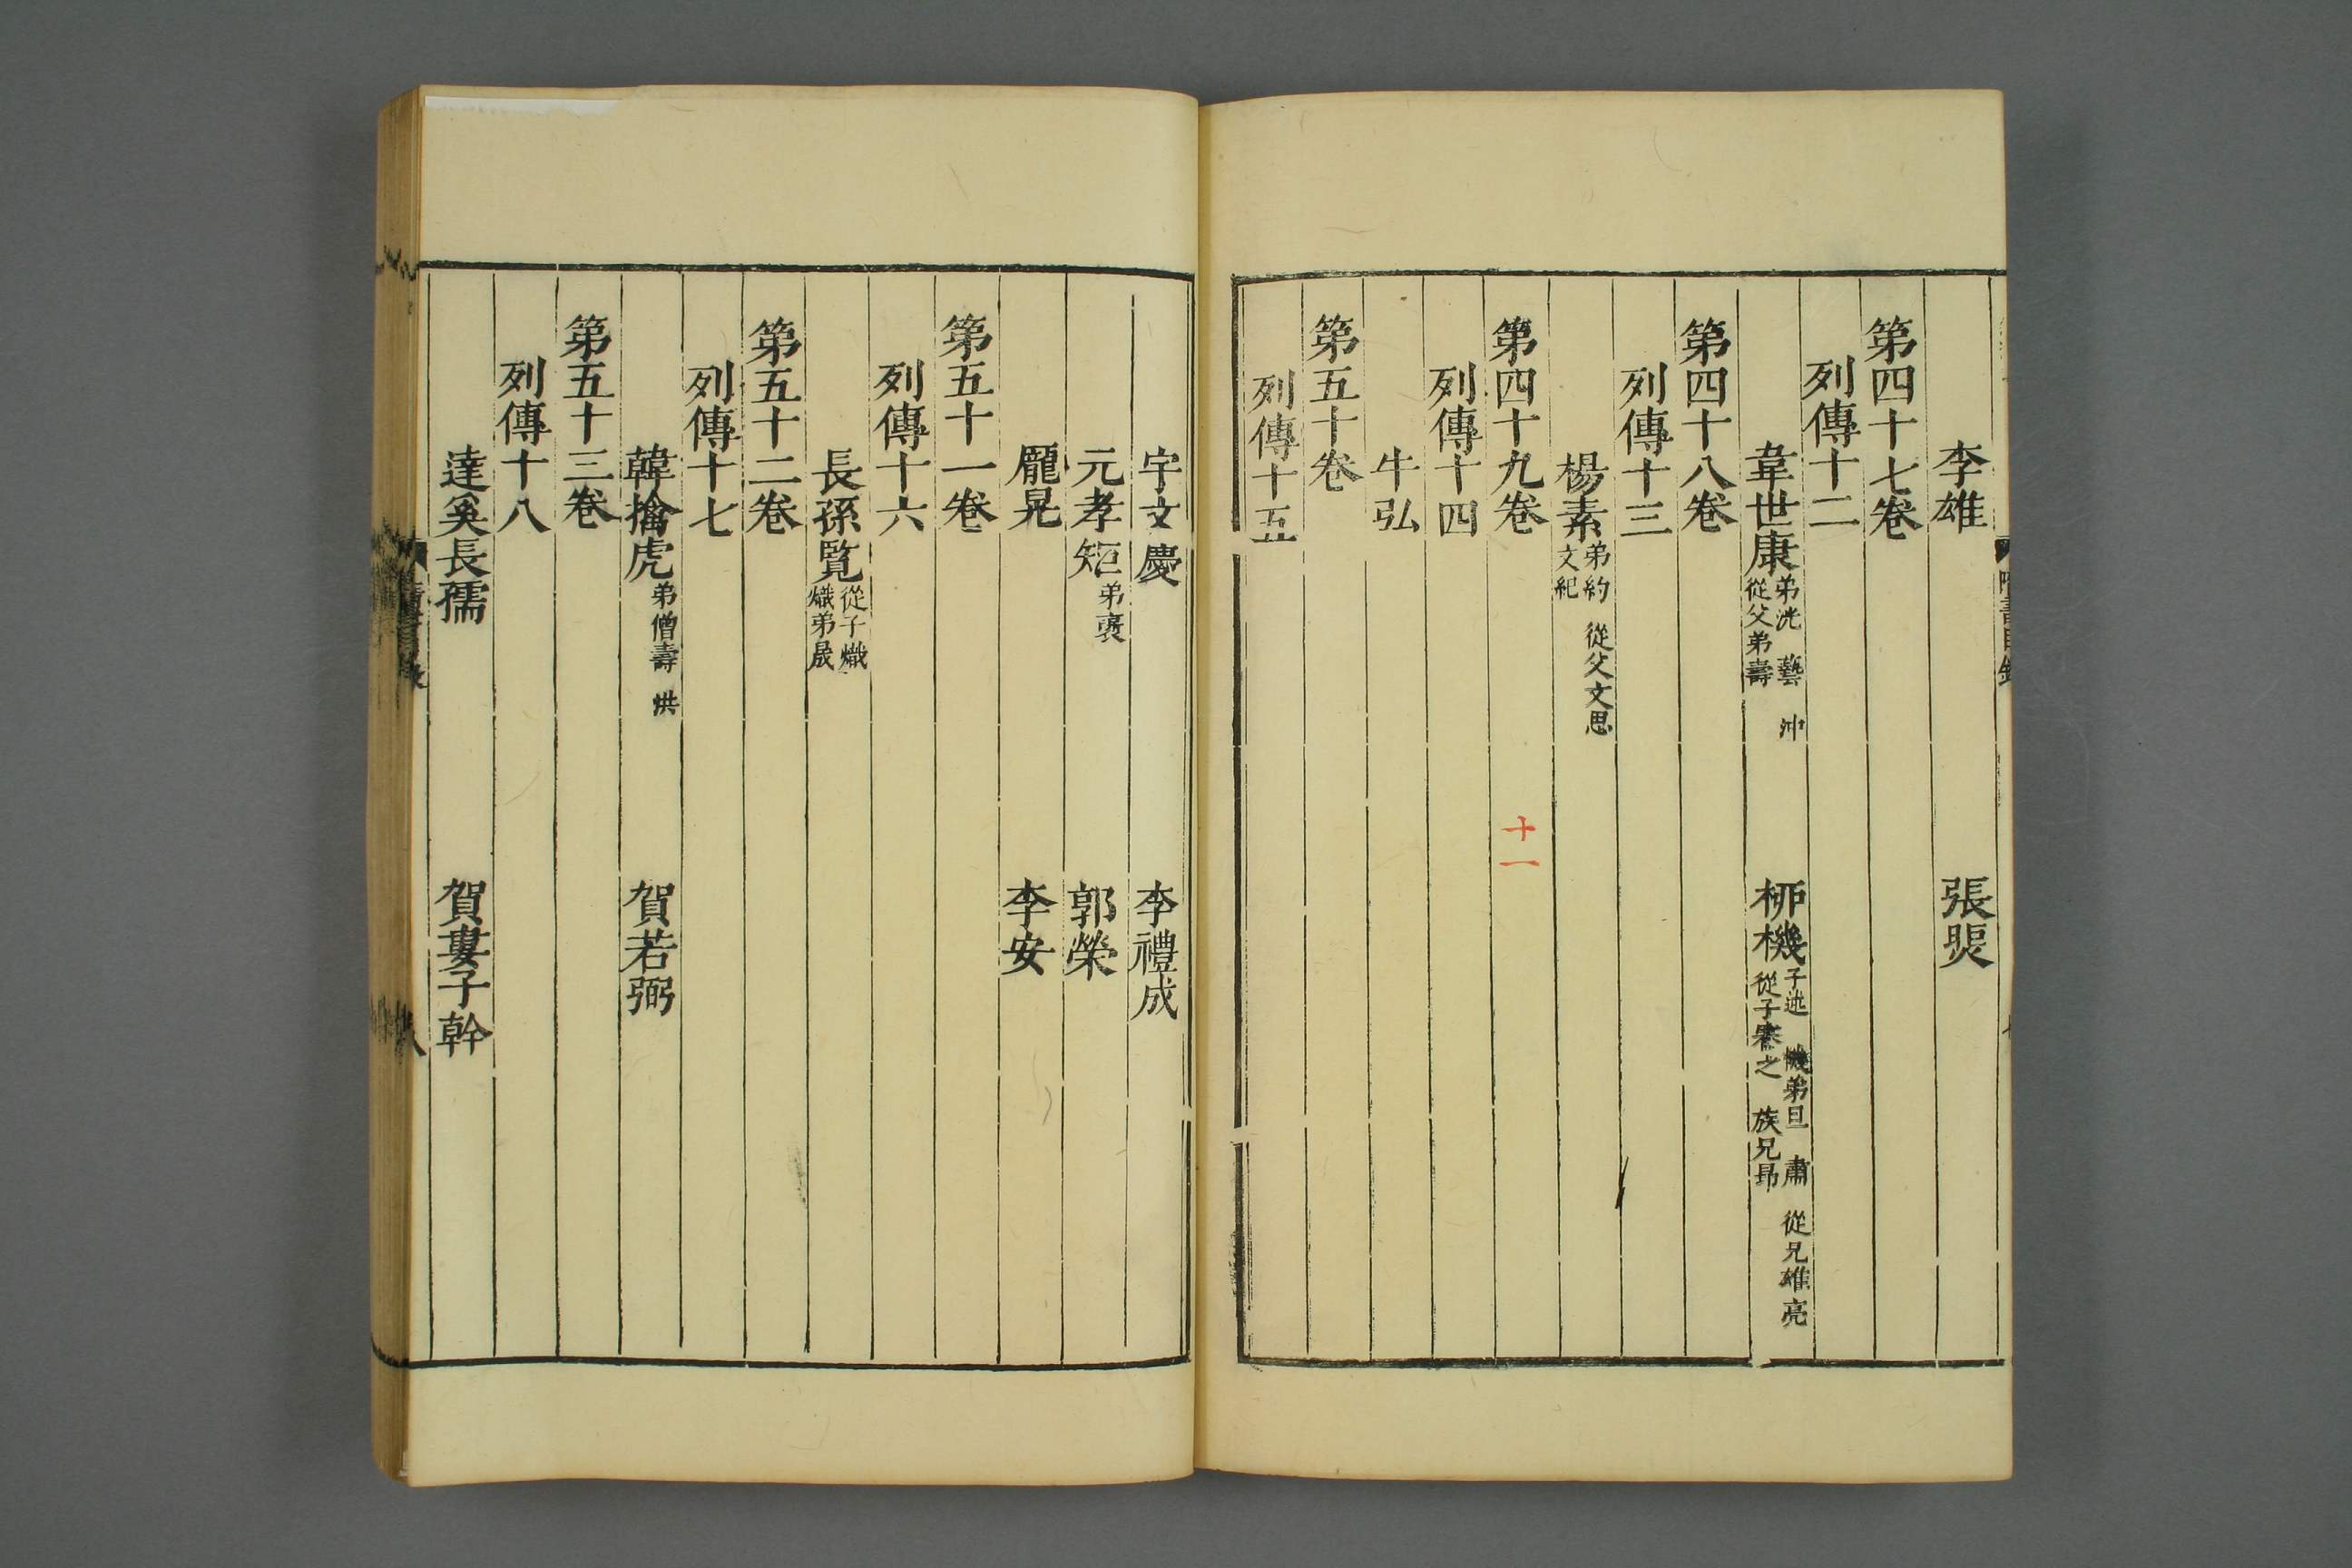 李雄 張煚
第四十七卷
列傳十二
韋世康 弟洸 藝 沖 從父弟壽 桺機 子述 機弟旦 肅 從兄雄亮 從子謇之 族兄昻
第四十八卷
列傳十三
楊素 弟約 從父文思 文紀
第四十九卷
列傳十四
十一
牛弘
第五十卷
列傳十五
宇文慶 李禮成
元孝矩 弟褒 郭榮
龐晃 李安
第五十一卷
列傳十六
長孫覧 從子熾 熾弟晟
第五十二卷
列傳十七
韓擒虎 弟僧壽 洪 賀若弼
第五十三卷
列傳十八
達奚長孺 賀婁子幹